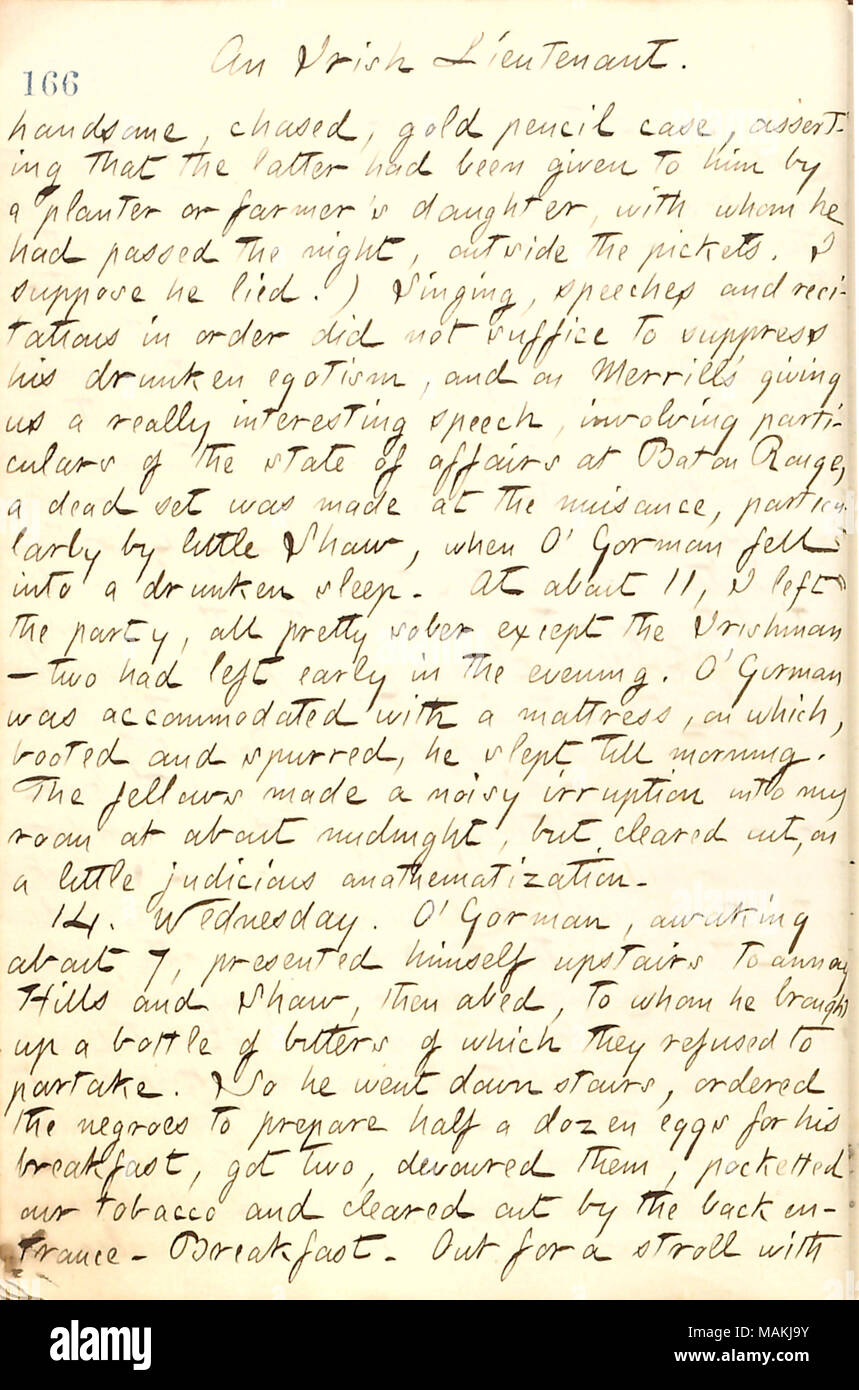 An Irish Lieutenant.
166
handsome, chased, gold pencil case, assert-
ing that the latter had been given to him by
a planter or farmer's daughter, with whom he
had passed the night, outside the pickets. I
suppose he lied.) Singing, speeches and reci-
tations in order did not suffice to suppress
his drunken egotism, and on Merrill's giving
us a really interesting speech, involving parti-
culars of the state of affairs at Baton Rouge,
a dead set was made at the nuisance, particu-
larly by little Shaw, when O' Gorman fell
into a drunken sleep. At about 11, I left
the party, all pretty sober except the Irishman
- two had left early in the evening. O' Gorman
was accommodated with a mattress, on which,
booted and spurred, he slept till morning.
The fellows made a noisy irruption into my
room at about midnight, but cleared out, on
a little judicious anathematization.
14. Wednesday. O' Gorman, awaking
about 7, presented himself upstairs to annoy
Hills and Shaw, then abed, to whom he brought
up a bottle of bitters of which they refused to
partake. So he went down stairs, ordered
the negroes to prepare half a dozen eggs for his
breakfast, got two, devoured them, pocketted
our tobacco and cleared out by the back en-
trance - Breakfast. Out for a stroll with
alamy
Image ID: MAKJ9Y
www.alamy.com